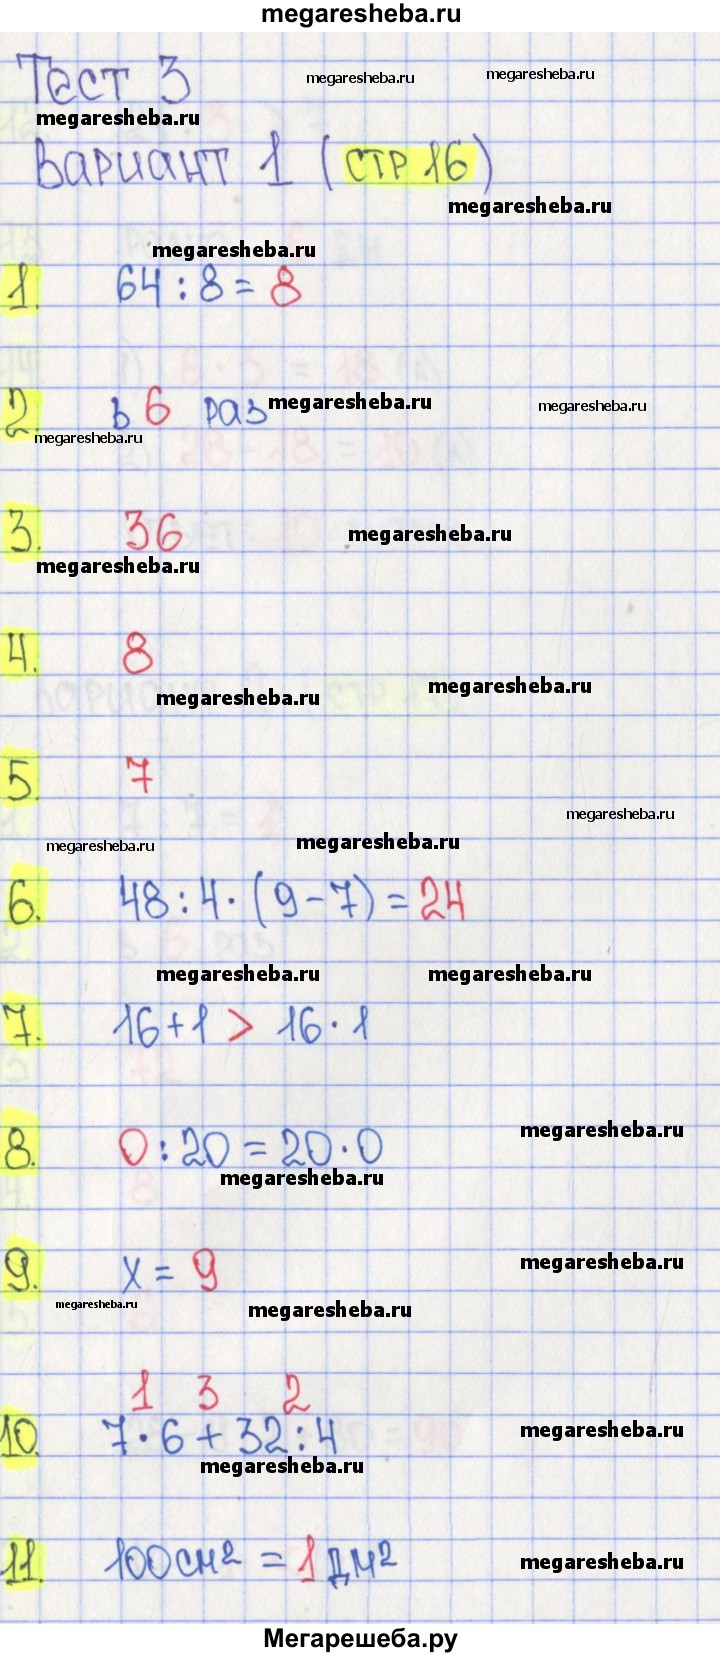 megaresheba.ru
Тест 3
megaresheba.ru megaresheba.ru
megaresheba.ru
Вариант 1 (стр 16)
megaresheba.ru
megaresheba.ru
1. 64 : 8 = 8
2. в 6 раз megaresheba.ru megaresheba.ru
megaresheba.ru
3. 36 megaresheba.ru
megaresheba.ru
4. 8
megaresheba.ru megaresheba.ru
5. 7
megaresheba.ru
megaresheba.ru megaresheba.ru
6. 48 : 4 · (9 - 7) = 24
megaresheba.ru megaresheba.ru
7. 16 + 1 > 16 · 1
megaresheba.ru
8. 0 : 20 = 20 · 0
megaresheba.ru
9. x = 9 megaresheba.ru
megaresheba.ru megaresheba.ru
1 3 2
10. 7 · 6 + 32 : 4 megaresheba.ru
megaresheba.ru
11. 100 см² = 1 дм² megaresheba.ru
Мегарешеба.ру